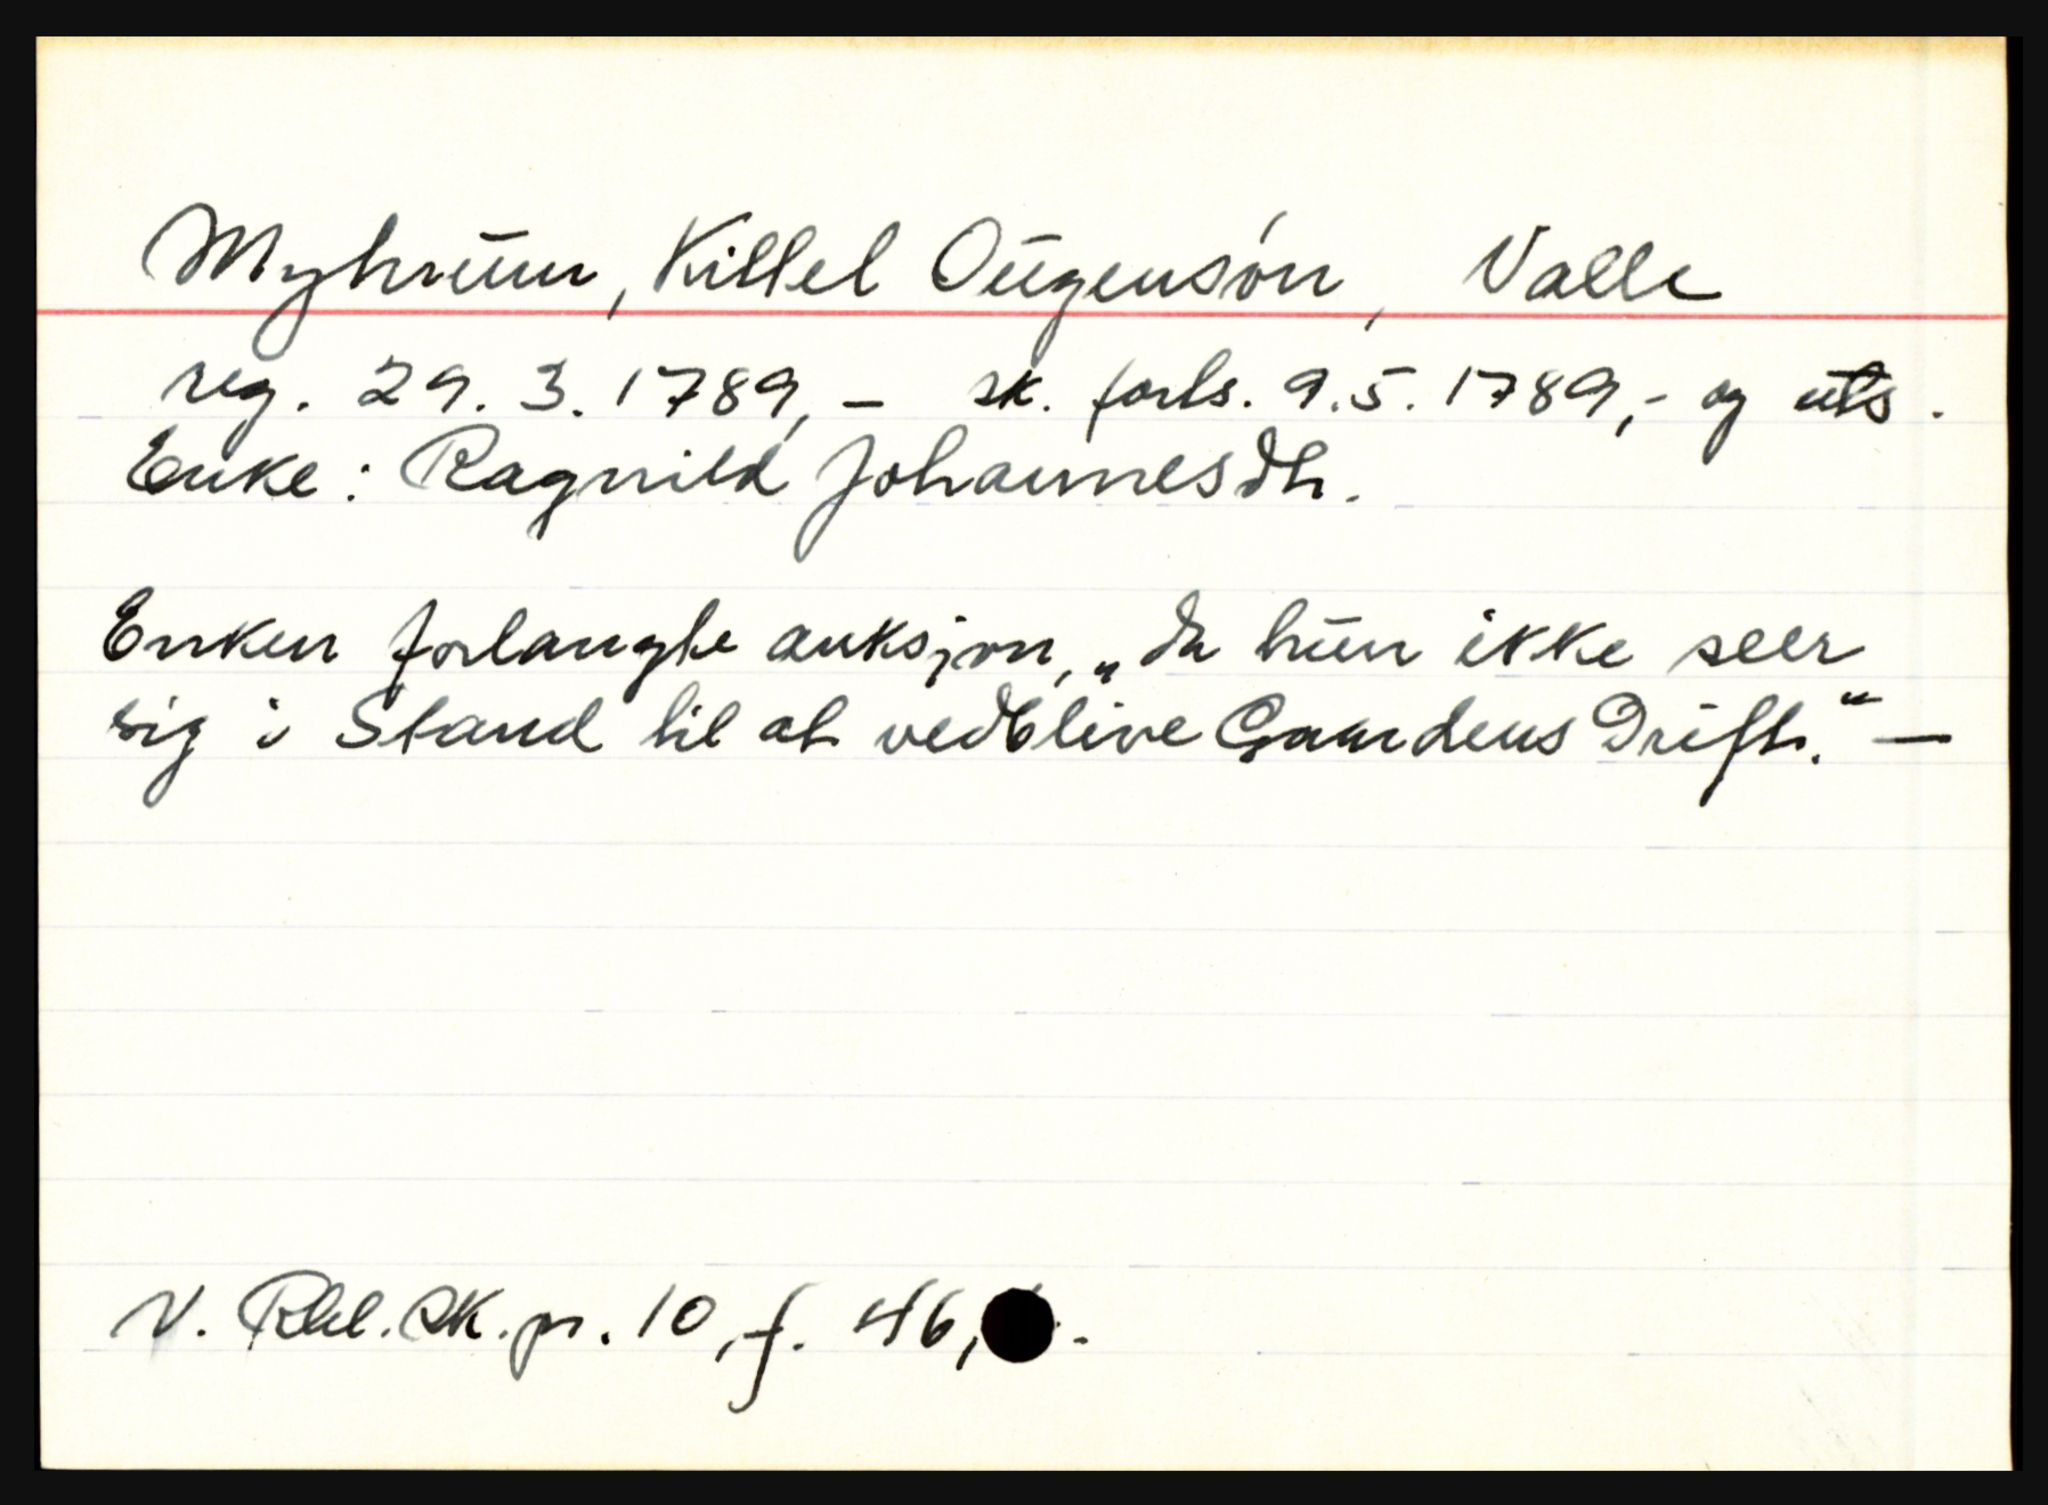 Myhrum, Kittel Ougensön, Valle
reg. 29. 3. 1789, – sk. forts. 9.5. 1789,- og uts.
Enke: Ragnild Johannesdtr.
Enken forlangte auksjon, „da hun ikke seer
sig i Stand til at vedblive Gaardens Drift." —
V. Rbl. sk. pr. 10, f. 46,